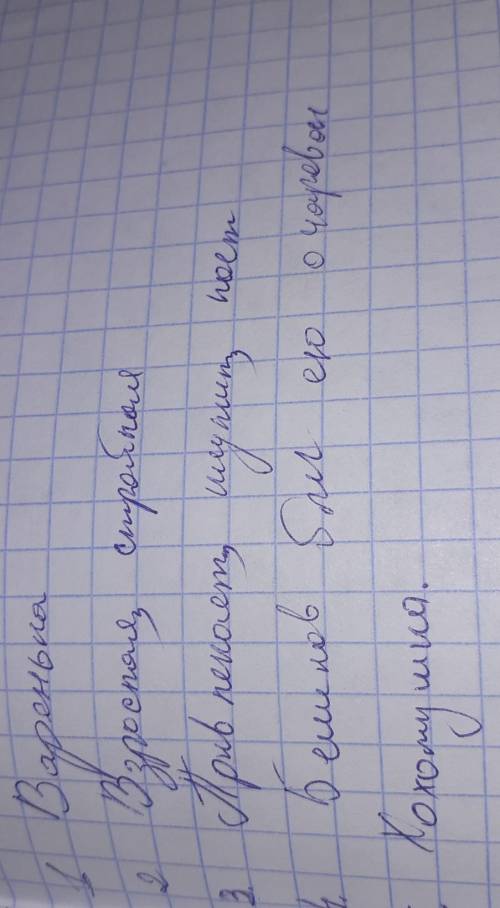 1 Варенька
2 Взрослая, стройная
3. Привлекает, шутит, поет
4. Беликов был ею очарован
Хохотушка.